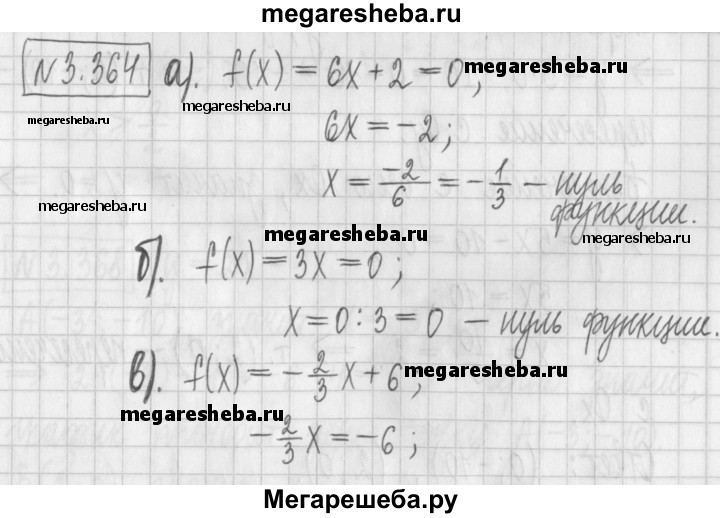 megaresheba.ru
N3.364 а). f(x) = 6x + 2 = 0; megaresheba.ru
megaresheba.ru
megaresheba.ru 6x = -2;
x = -2/6 = -1/3 – нуль
megaresheba.ru функции.
megaresheba.ru megaresheba.ru
б). f(x) = 3x = 0;
x = 0 : 3 = 0 – нуль функции.
megaresheba.ru
в). f(x) = -2/3 x + 6;
megaresheba.ru megaresheba.ru
-2/3 x = -6;
Мегарешеба.ру